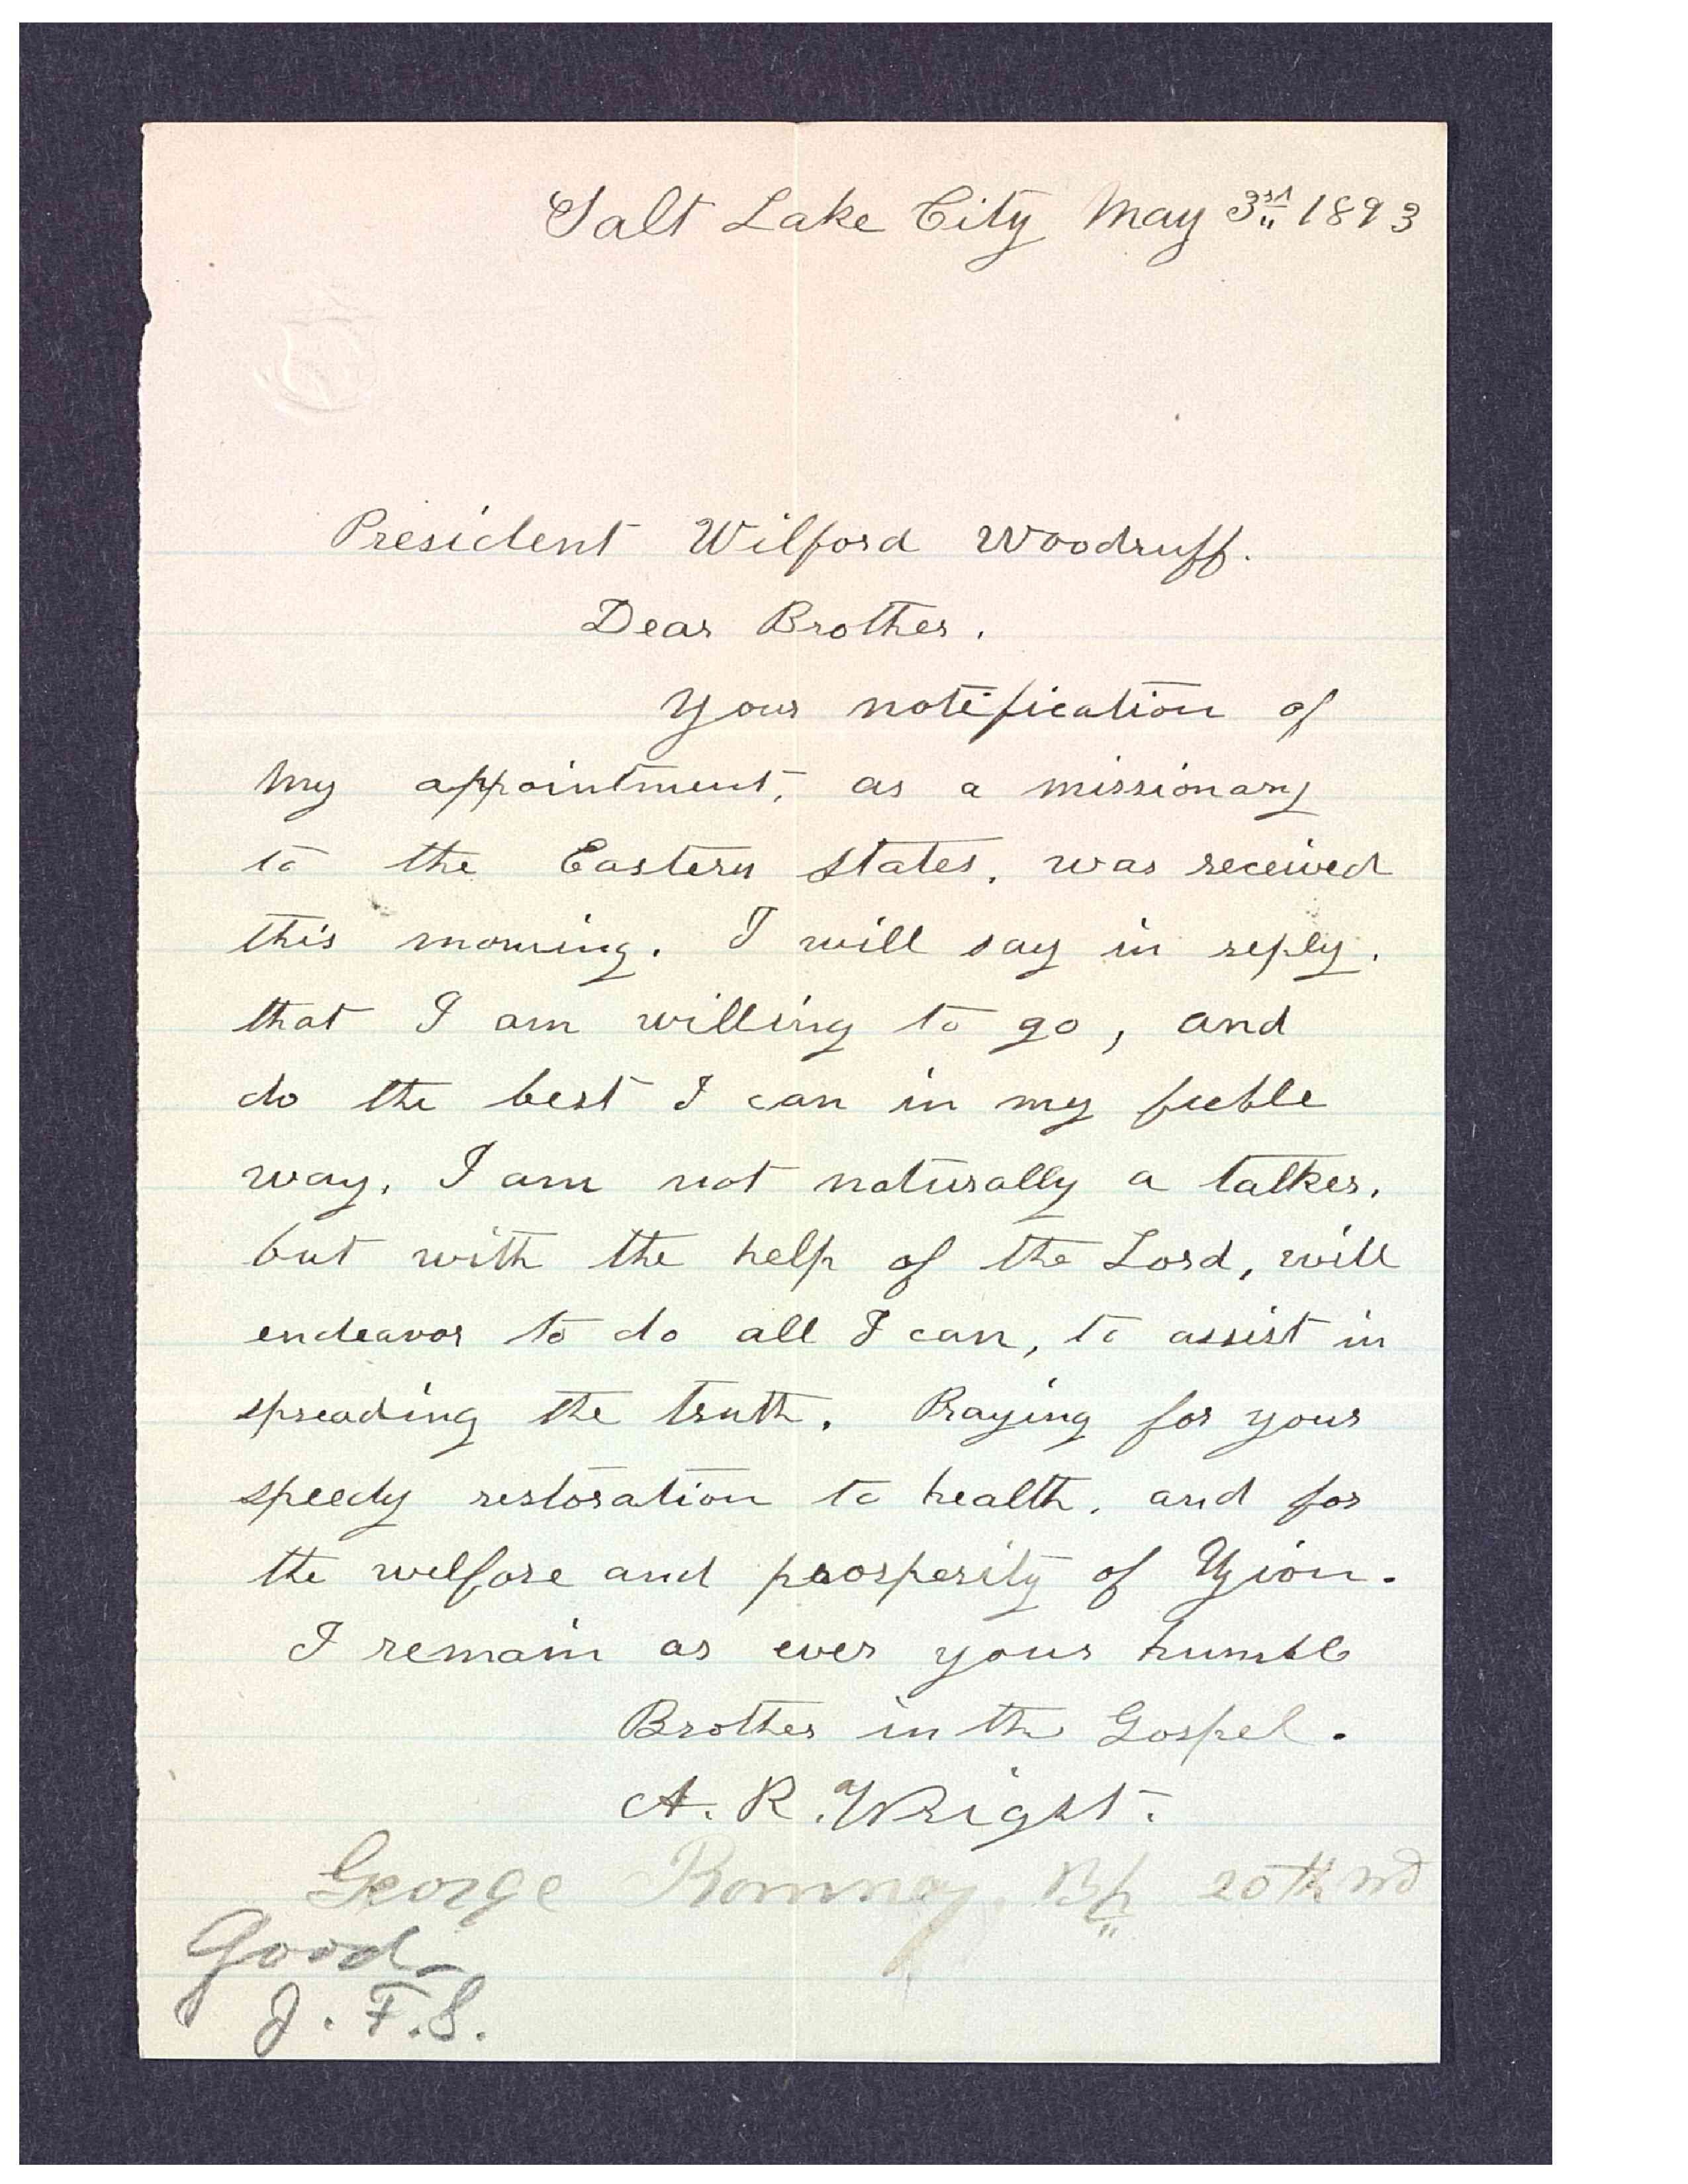 Salt Lake City May 3rd 1893
President Wilford Woodruff.
Dear Brother.
Your notification of
my appointment, as a missionary
to the Eastern states, was received
this morning. I will say in reply.
that I am willing to go, and
do the best I can in my feeble
way, I am not naturally a talker,
but with the help of the Lord, will
endeavor to do all I can, to assist in
spreading the truth. Praying for your
speedy restoration to health, and for
the welfare and prosperity of Zion.
I remain as ever your humble
Brother in the Gospel.
A. R. Wright.
George Romney, Bp 20th wd
Good.
J. F. S.